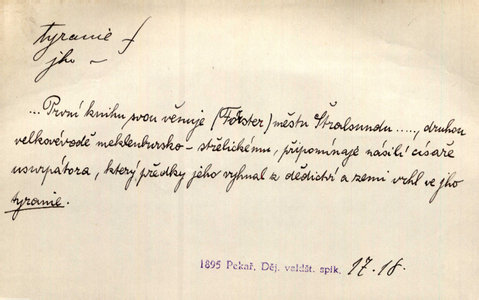 tyranie
jho –
... První knihu svou věnuje (Förster) městu Štralsundu ...., druhou
velkovévodě meklenbursko-střelickému, připomínaje násilí císaře
usurpátora, který předky jeho vyhnal z dědictví a zemi vrhl ve jho
tyranie.
1895 Pekař, Děj. valdšt. spik. 17.18.